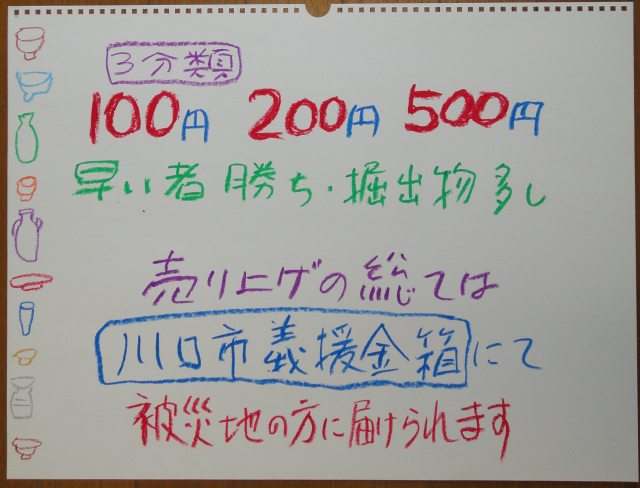 3分類
100円 200円 500円
早い者勝ち・掘出物多し
売り上げの総ては
川口市義援金箱にて
被災地の方に届けられます